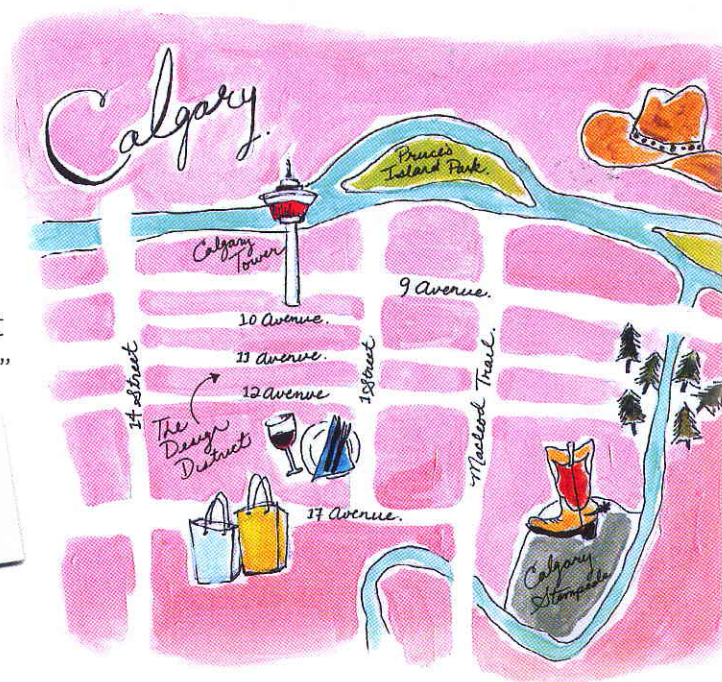 Calgary.
Prince's
Island Park.
Calgary
Tower
9 Avenue.
10 Avenue.
11 Avenue.
12 Avenue
14 Street
1 Street
Macleod Trail.
The
Design
District
17 Avenue.
Calgary
Stampede
”